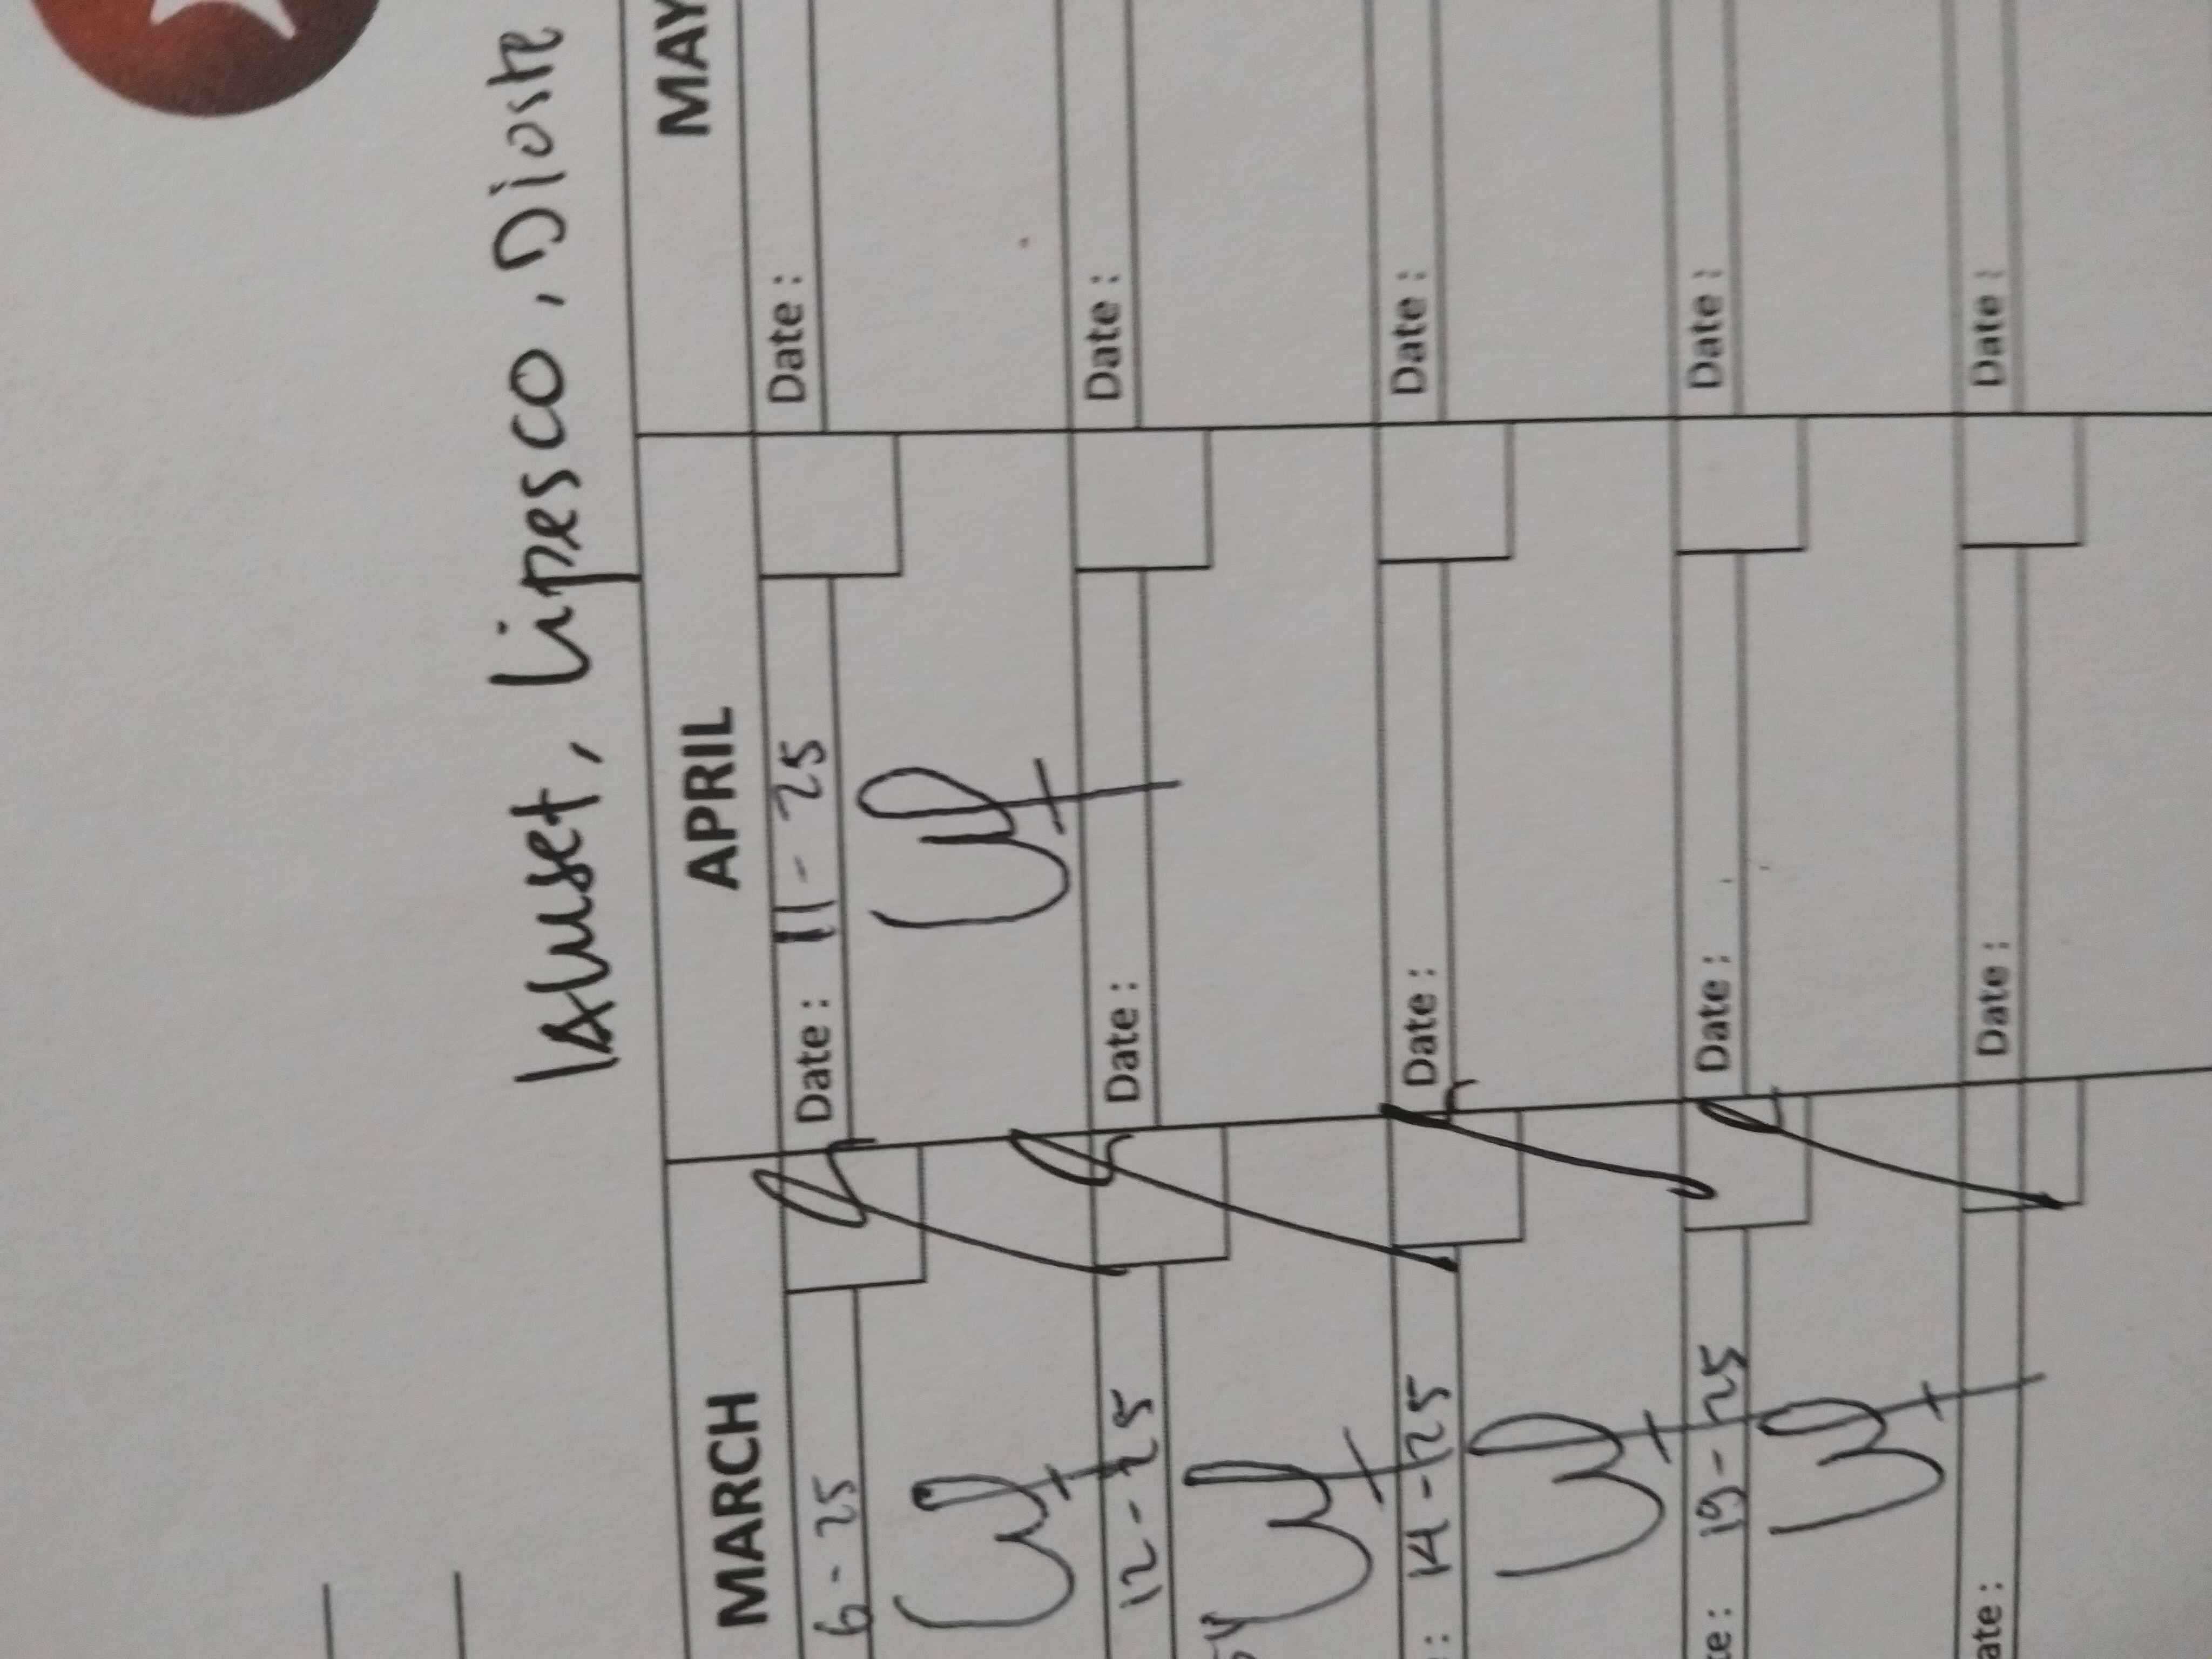 Lipesco, Dioste
MARCH APRIL MAY
6-25 Date: 11-25 Date:
12-25 Date: Date:
: 14-25 Date: Date:
te: 19-25 Date: Date:
ate: Date: Date: